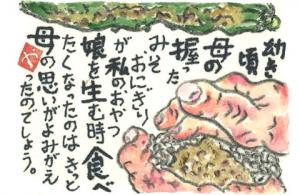 幼き頃
母の
握った
みそ
おにぎり
が私のおやつ
娘を生む時食べ
たくなったのはきっと
母の思いがよみがえ
ったのでしょう。
や